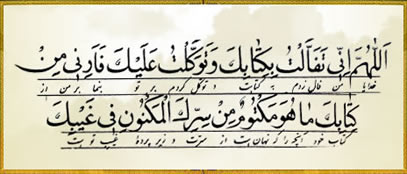 اَللّٰهُمَّ اِنّى تَفَأَّلْتُ بِكِتابِكَ وَتَوَكَّلْتُ عَلَيْكَ فَاَرِنى مِنْ
خدایا من فال زدم به کتابت و توکل کردم بر تو بنما بر من از
كِتابِكَ ما هُوَ مَكْتُومٌ مِنْ سِرِّكَ الْمَكْنُونِ فى غَيْبِكَ
کتاب خود آنچه را که نهان است از سرت و زیر پردهٔ غیب تو است